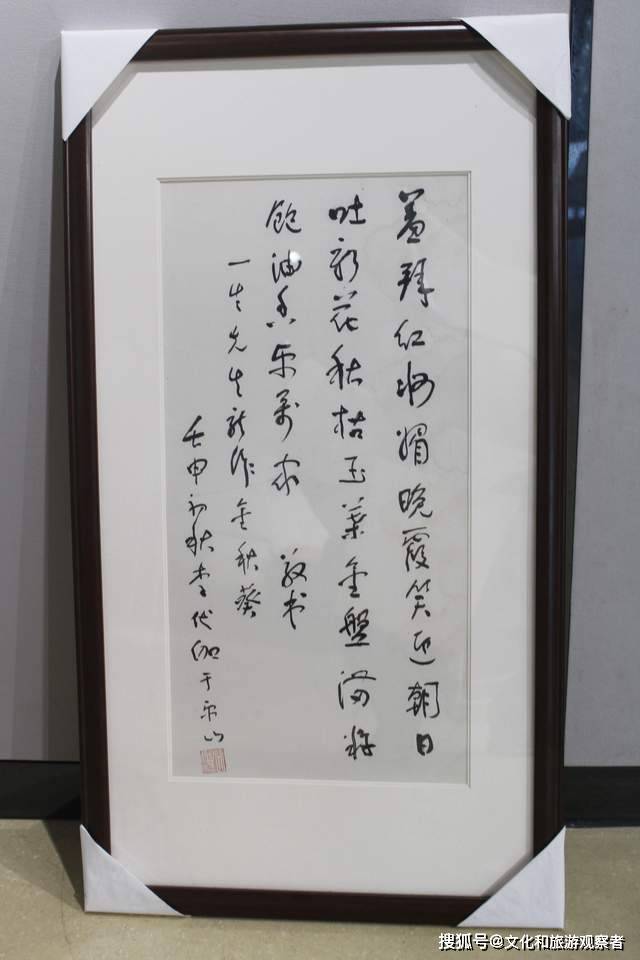 拜红媚晚霞笑迎朝日
吐新花秋枯玉葉金盤满籽
飽油香乐萬家 敬书
一生先生新作金秋葵
壬申初秋李代伽于乐山
搜狐号@文化和旅游观察者